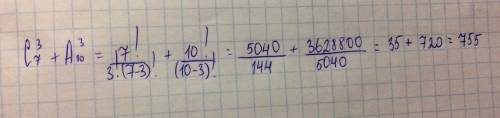 C₇³ + A₁₀³ = 7! / 3!·(7-3)! + 10! / (10-3)! = 5040 / 144 + 3628800 / 5040 = 35 + 720 = 755